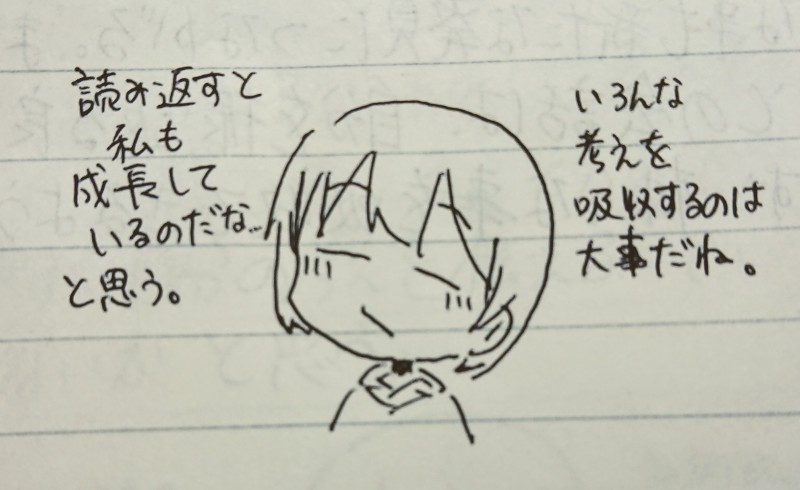 読み返すと
私も
成長して
いるのだな…
と思う。
いろんな
考えを
吸収するのは
大事だね。